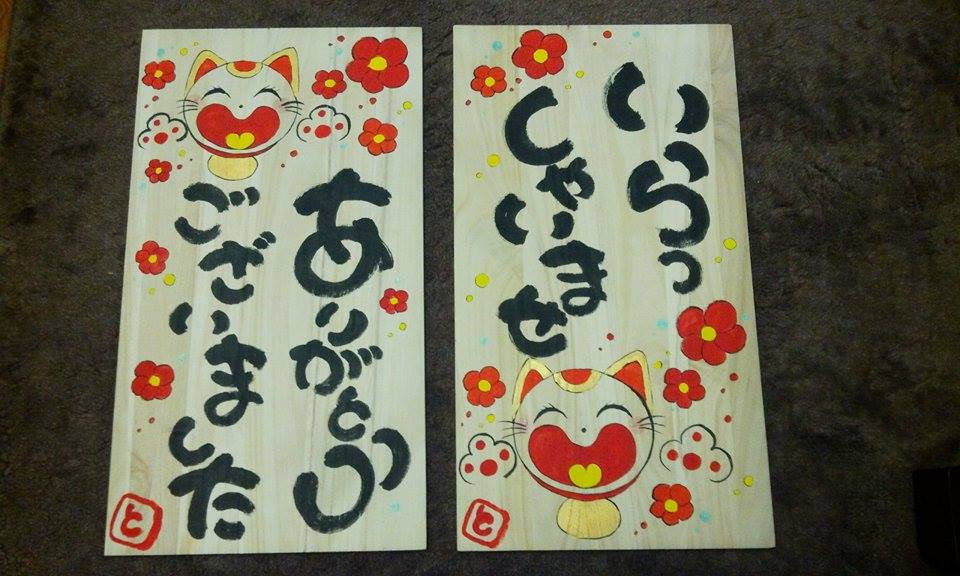 ありがとう
ございました
と
いらっ
しゃいませ
と